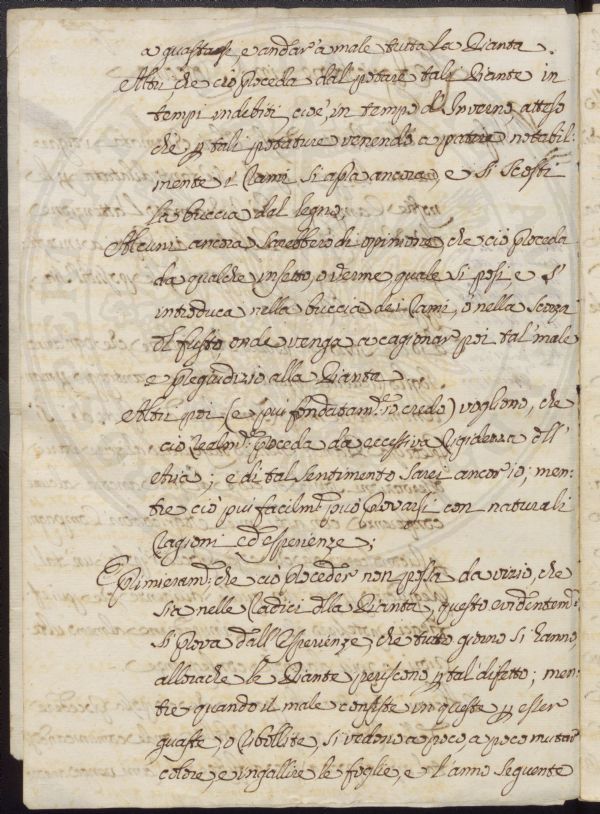 a guastarsi, e andar' a male tutta la Pianta.
Altri che ciò proceda dal potare tali Piante in
tempi indebiti, cioè in tempo d'Inverno, atteso
che p tali potature venendo a patire notabil:
mente i Rami si apa ancora, e si scosti
la buccia dal legno;
Alcuni ancora sarebbero di opinione, che ciò proceda
da qualche insetto, o verme, quale si posi, e s'
introduca nella buccia dei Rami, o nella scorza
del fusto, onde venga a cagionar poi tal' male
e pregiudizio alla Pianta.
Altri poi (e più fondatam.te io credo) vogliono, che
ciò realm.te proceda da eccessiva rigidezza dell'
etria; e di tal sentimento sarei ancor io; men:
tre ciò più facilm.te può provarsi con naturali
ragioni ed esperienze;
E primieram.te che ciò proceder non possa da vizio, che
sia nelle Radici della Pianta, questo evidentem.te
si prova dall'esperienze, che tutto giorno si hanno,
allorache le Piante periscono p tal' difetto; men:
tre quando il male consiste in queste p esser
guaste, o ribollite, si vedono a poco, a poco mutar
colore, e ingallire le foglie, e l'anno seguente